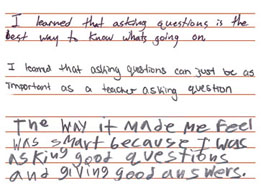 I learned that asking questions is the
best way to know whats going on.
I learned that asking questions can just be as
important as a teacher asking question
The way it made me feel
was smart because I was
asking good questions
and giving good answers.